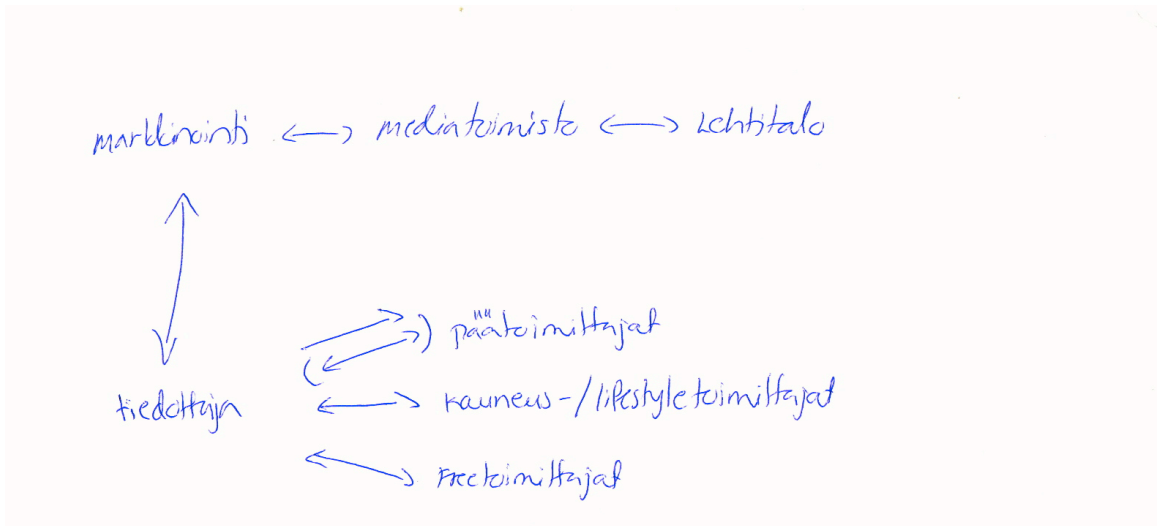 markkinointi <-> mediatoimisto <-> Lehtitalo
päätoimittajat
tiedottaja <-> kauneus-/lifestyletoimittajat
Freetoimittajat